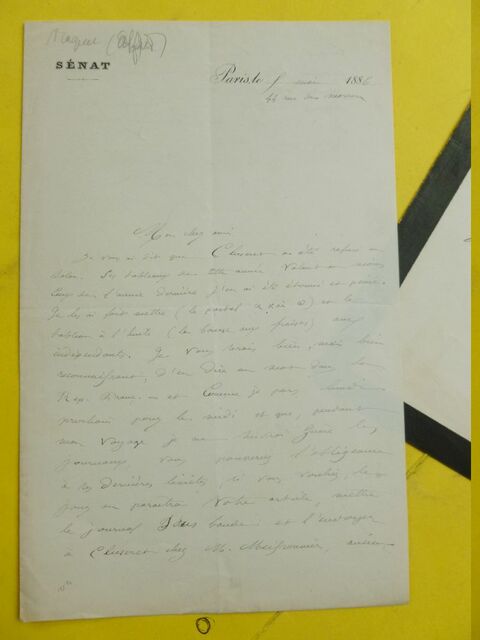 (Alfred)
SÉNAT
Paris, le 5 mai 1886
44 rue des
Mon cher ami
Je vous ai dit que Cluseret a été refusé au
Salon. Ses tableaux de cette année valent au moins
ceux de l'année dernière, j'en ai été étonné et peiné.
Je lui ai fait mettre (le pastel et le
tableau à l'huile (la aux fraises) aux
indépendants. Je vous serais bien, mais bien
reconnaissant, d'en dire un mot dans la
Rép. et comme je pars lundi
prochain pour le midi et que, pendant
mon voyage je ne lirai guère les
journaux, vous pousseriez l'obligeance
à ses dernières limites, si vous vouliez, le
jour où paraîtra votre article, mettre
le journal sous bande et l'envoyer
à Cluseret chez M. Meissonnier,